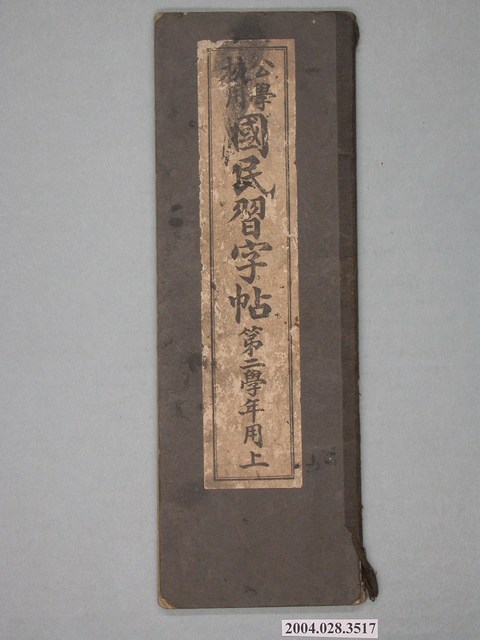 公學
校用
國民習字帖
第二學年用上
2004.028.3517